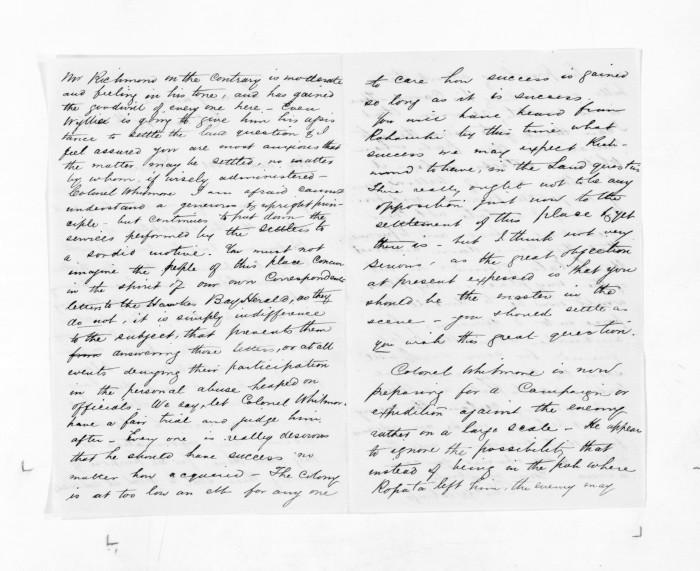 Mr Richmond on the contrary is moderate
and feeling in his tone, and has gained
the goodwill of every one here - Even
Wyllie is going to give him his assis
tance to settle the land question & I
feel assured you are most anxious that
the matter may be settled, no matter
by whom, if wisely administered -
Colonel Whitmore I am afraid cannot
understand a generous & upright prin-
ciple - but continues to put down the
services performed by the settlers to
a sordid motive. You must not
imagine the people of this place concur
in the spirit of our own Correspondents
letter to the Hawkes Bay Herald, as they
do not, it is simply indifference
to the subject, that prevents them
from answering those letters, or at all
events denying their participation
in the personal abuse heaped on
officials. We say, let Colonel Whitmore
have a fair trial and judge him
after - Every one is really desirous
that he should have success no
matter how acquired - The Colony
is at too low an ebb for any one
to care how success is gained
so long as it is success.
You will have heard from
by this time what
success we may expect Rich-
mond to have, in the Land question
There really ought not to be any
opposition just now to the
settlement of this place & yet
there is - but I think not very
serious, as the great objection
at present expressed is that you
should be the master in the
scene - you should settle as
you wish this great question.
Colonel Whitmore is now
preparing for a Campaign or
expedition against the enemy
rather on a large scale - He appears
to ignore the possibility that
instead of being in the pah where
Ropata left him, the enemy may